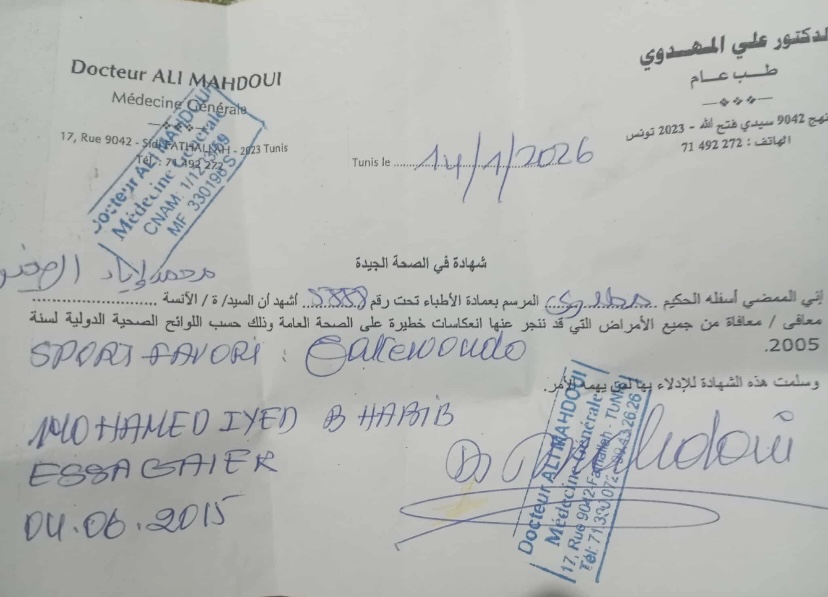 Docteur ALI MAHDOUI
Médecine Générale
17, Rue 9042 - Sidi FATHALLAH - 2023 Tunis
Tél.: 71 492 272
الدكتور علي المهدوي
طب عام
نهج 9042 سيدي فتح الله - 2023 تونس
الهاتف : 272 492 71
Docteur ALI MAHDOUI
Médecine Générale
CNAM: 1/12
MF 330196 S
Tunis le 14/1/2026
شهادة في الصحة الجيدة
محمد إياد
إني الممضي أسفله الحكيم مهدوي المرسم بعمادة الأطباء تحت رقم أشهد أن السيد/ة / الآنسة
معافى / معافاة من جميع الأمراض التي قد ننجر عنها انعكاسات خطيرة على الصحة العامة وذلك حسب اللوائح الصحية الدولية لسنة
2005.
SPORT FAVORI : Taekwondo
وسلمت هذه الشهادة للإدلاء بها لمن يهمه الأمر.
MOHAMED IYED B HABIB
ESSAGAIER
04.06.2015
Dr Mahdoui
Docteur ALI MAHDOUI
Médecine Générale
17, Rue 9042-Fathallah - TUNIS
Tél: 71